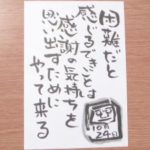 困難だと
感じるできごとは
感謝の気持ちを
思い出すために
やって来る
10月
24日